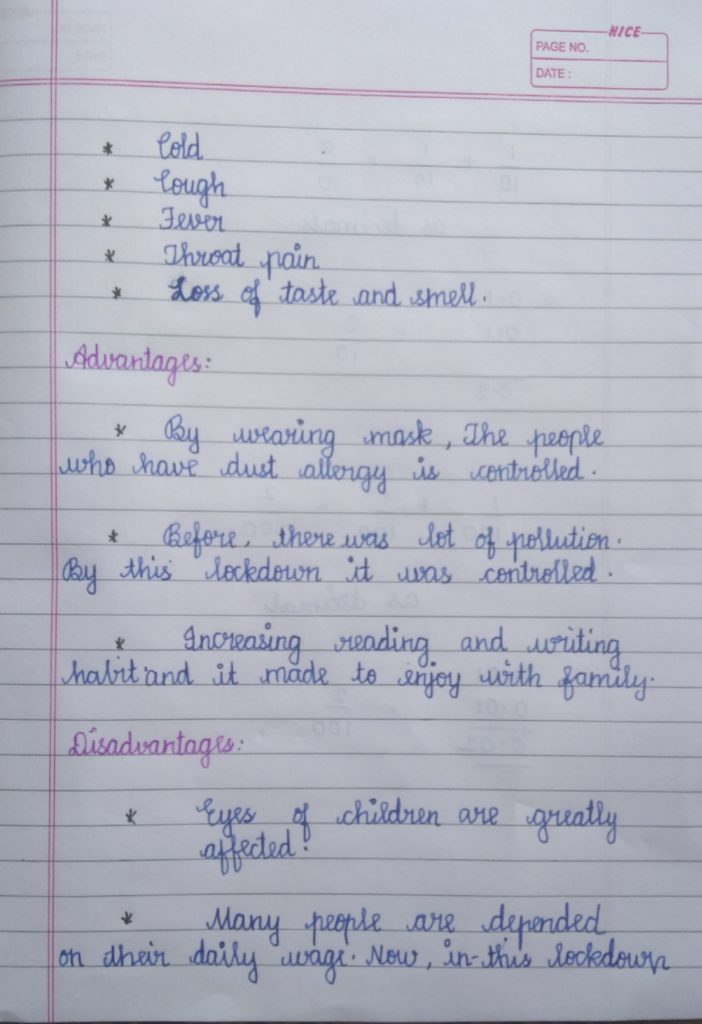 NICE
PAGE NO.
DATE :
* Cold
* Cough
* Fever
* Throat pain
* Loss of taste and smell.
Advantages:
* By wearing mask, The people
who have dust allergy is controlled.
* Before, there was lot of pollution.
By this lockdown it was controlled.
* Increasing reading and writing
habit and it made to enjoy with family.
Disadvantages:
* Eyes of children are greatly
affected.
* Many people are depended
on their daily wage. Now, in-this lockdown